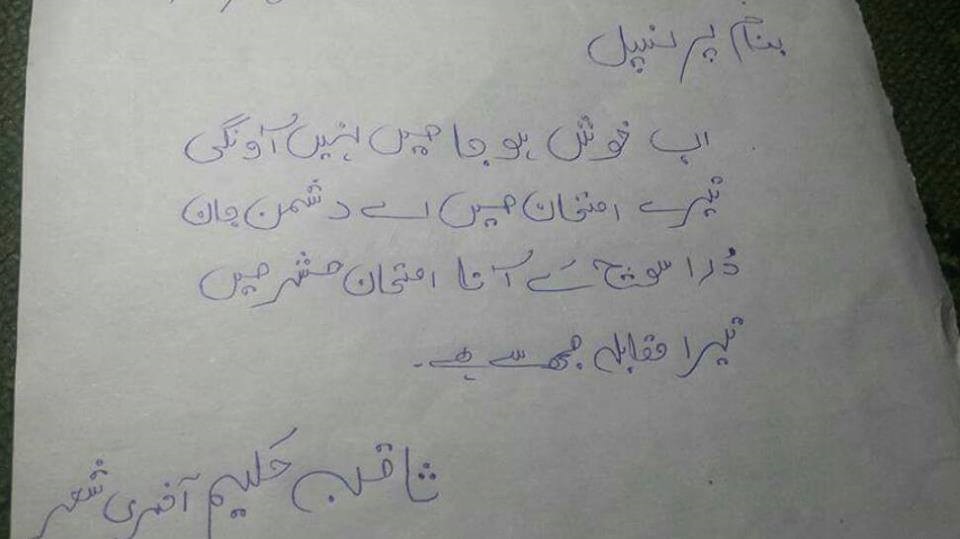 بنام پرنسپل
اب خوش ہو جا میں نہیں آونگی
تیرے امتحان میں اے دشمن جان
ذرا سوچ کے آنا امتحان حشر میں
تیرا مقابلہ مجھ سے ہے۔
ثاقب حلیم آخری شعر